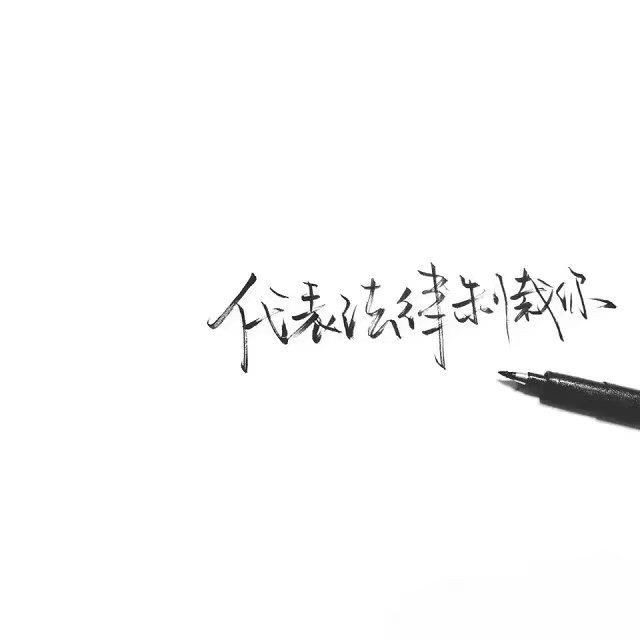 代表法律制裁你